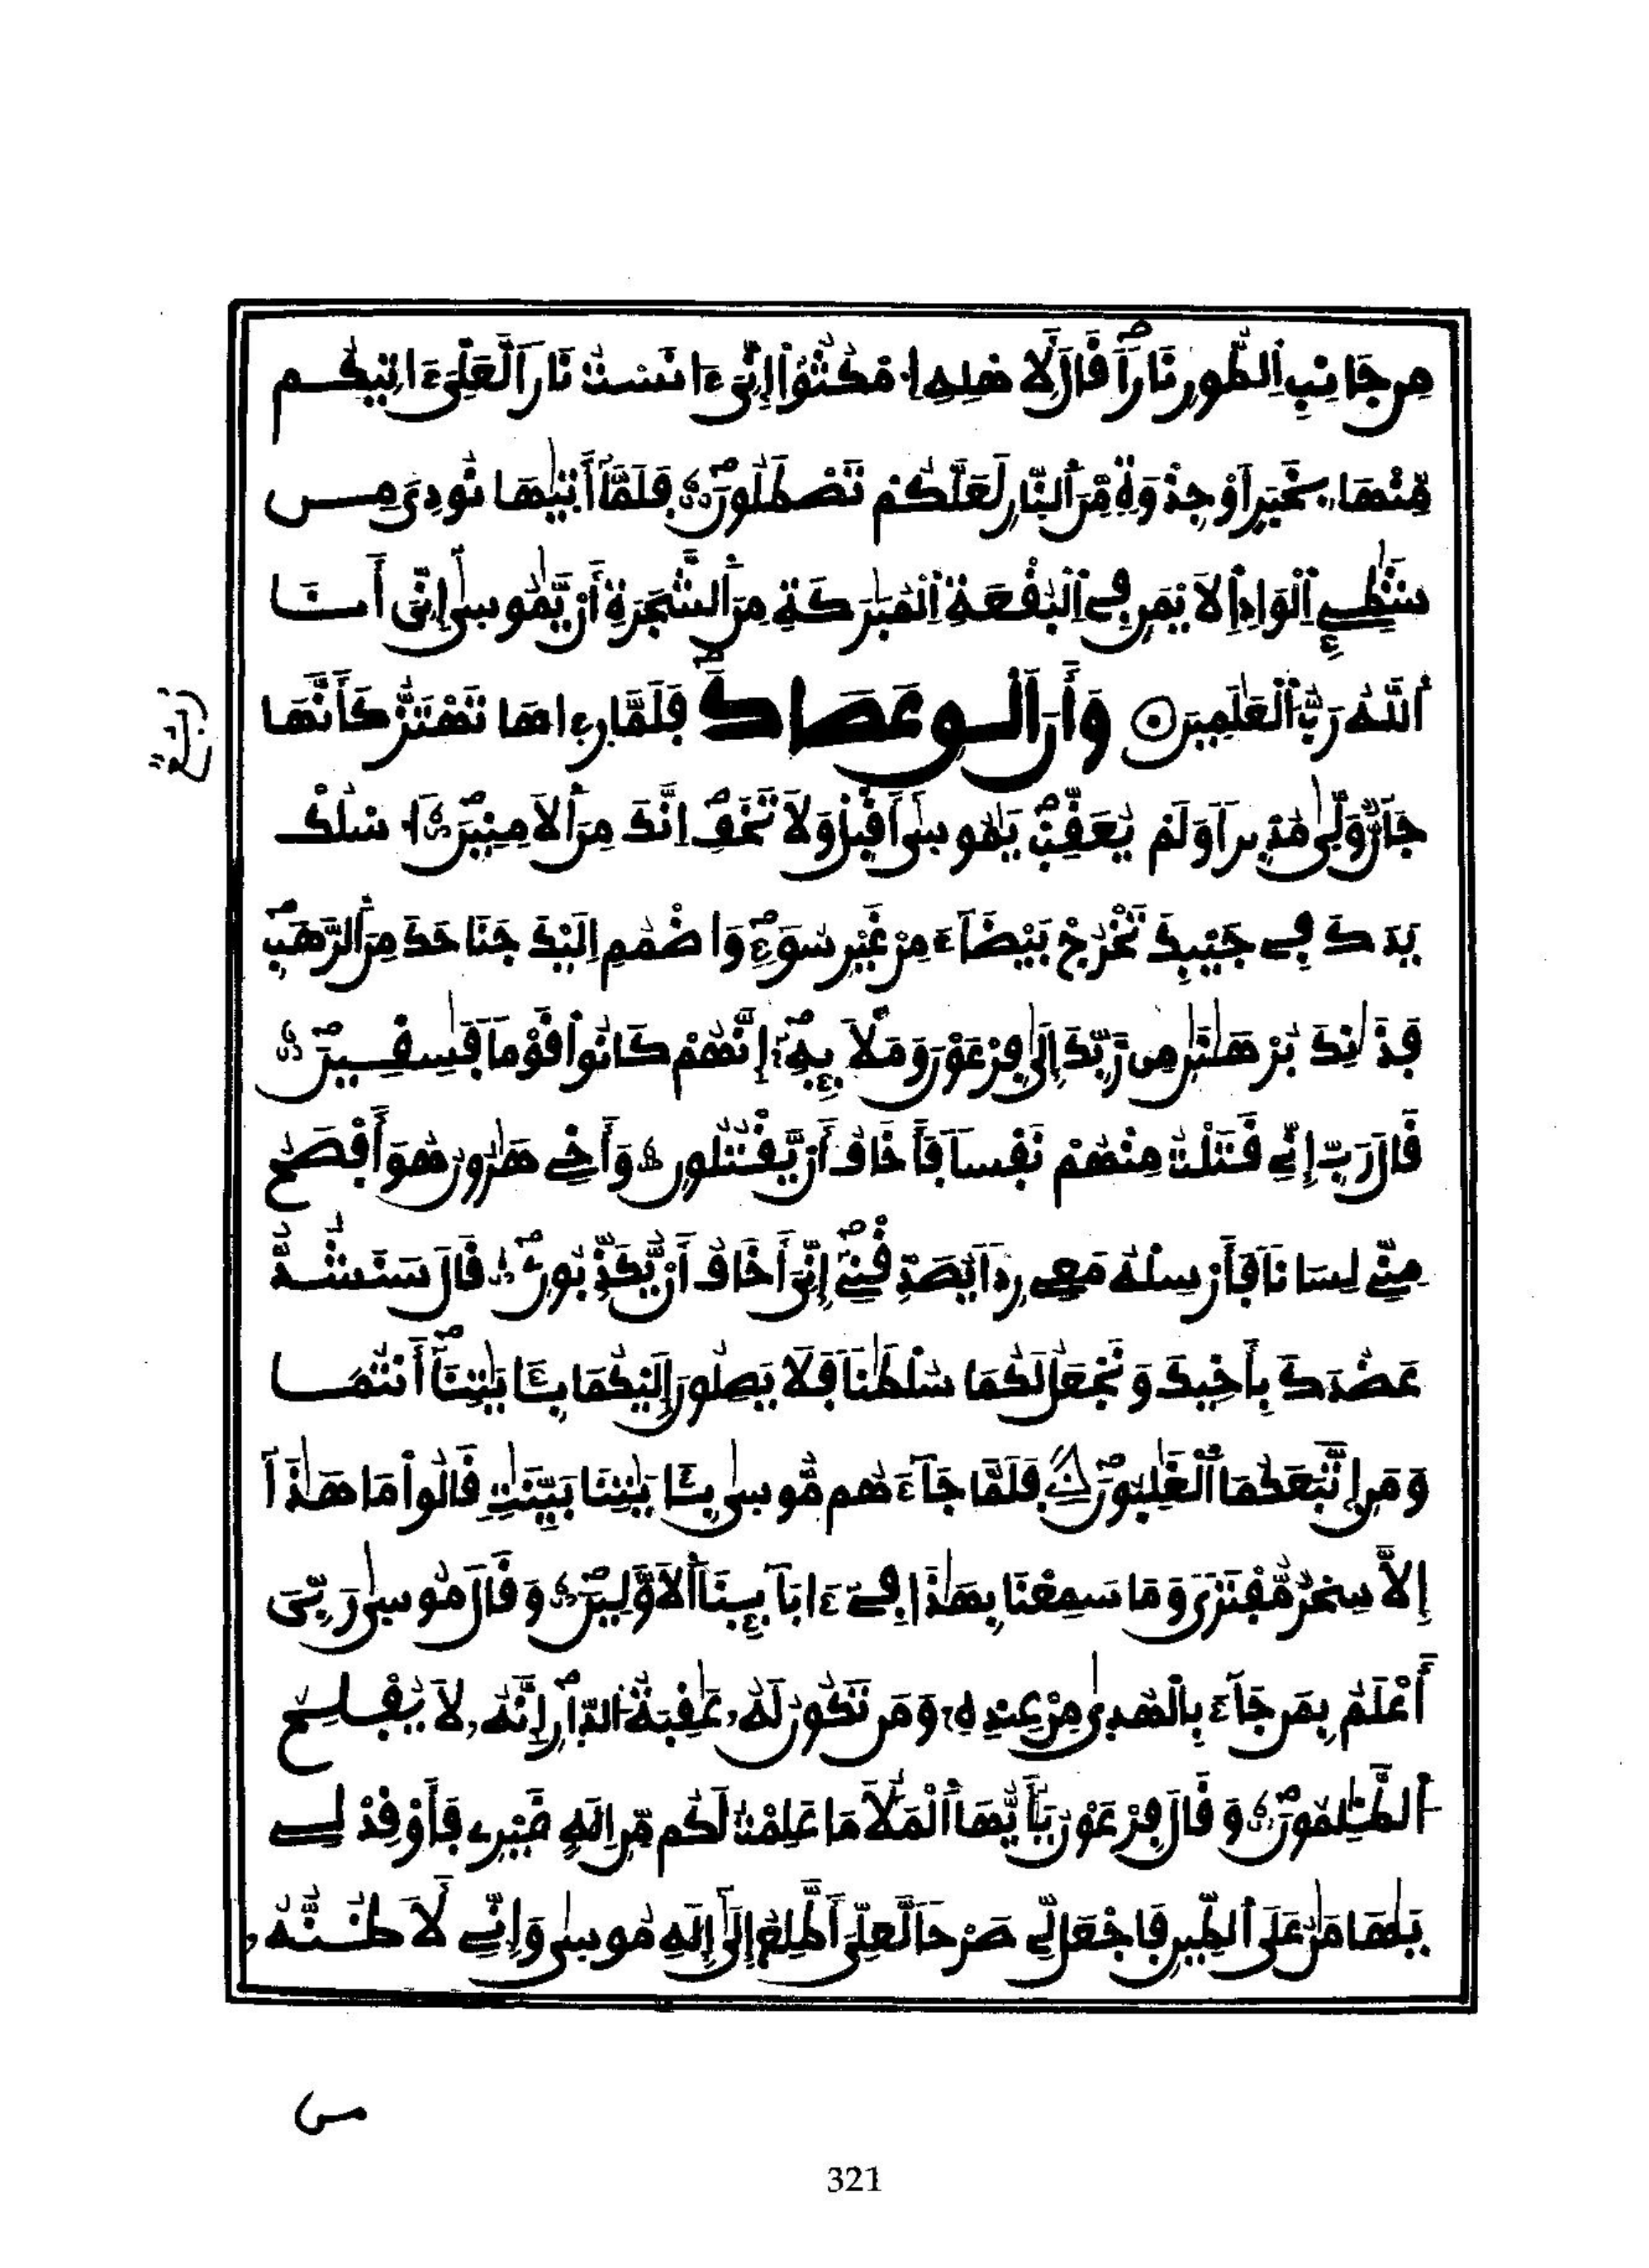 مِن جَانِبِ اِ۬لطُّورِ نَاراٗ قَالَ لِأَهْلِهِ اِ۟مْكُثُوٓاْ إِنِّيَ ءَانَسْتُ نَاراٗ لَّعَلِّيَ ءَاتِيكُم
مِّنْهَا بِخَبَرٍ اَوْ جِذْوَةٖ مِّنَ اَ۬لنّ۪ارِ لَعَلَّكُمْ تَصْطَلُونَۖ فَلَمَّآ أَتَيٰهَا نُودِيَ مِن
شَٰطِےِٕ اِ۬لْوَادِ اِ۬لَايْمَنِ فِے اِ۬لْبُقْعَةِ اِ۬لْمُبَٰرَكَةِ مِنَ اَ۬لشَّجَرَةِ أَنْ يَّٰمُوس۪يٰٓ إِنِّيَ أَنَا
اَ۬للَّهُ رَبُّ اُ۬لْعَٰلَمِينَ وَأَنَ اَلْقِ عَصَاكَۖ فَلَمَّا ر۪ء۪اهَا تَهْتَزُّ كَأَنَّهَا
جَآنّٞ وَلّ۪يٰ مُدْبِراٗ وَلَمْ يُعَقِّبْۖ يَٰمُوس۪يٰٓ أَقْبِلْ وَلَا تَخَفِۖ اِنَّكَ مِنَ اَ۬لَامِنِينَۖ اَ۟سْلُكْ
يَدَكَ فِے جَيْبِكَ تَخْرُجْ بَيْضَآءَ مِنْ غَيْرِ سُوٓءٖۖ وَاضْمُمِ اِلَيْكَ جَنَاحَكَ مِنَ اَ۬لرَّهَبِۖ
فَذَٰنِكَ بُرْهَٰنَٰنِ مِن رَّبِّكَ إِلَيٰ فِرْعَوْنَ وَمَلَإِيْهِۦٓۖ إِنَّهُمْ كَانُواْ قَوْماٗ فَٰسِقِينَۖ
قَالَ رَبِّ إِنِّے قَتَلْتُ مِنْهُمْ نَفْساٗ فَأَخَافُ أَنْ يَّقْتُلُونِ وَأَخِے هَٰرُونُ هُوَ أَفْصَحُ
مِنِّے لِسَاناٗ فَأَرْسِلْهُ مَعِے رِداٗ يُصَدِّقْنِےۖ إِنِّيَ أَخَافُ أَنْ يُّكَذِّبُونِۖ قَالَ سَنَشُدُّ
عَضُدَكَ بِأَخِيكَ وَنَجْعَلُ لَكُمَا سُلْطَٰناٗ فَلَا يَصِلُونَ إِلَيْكُمَا بِـَٔايَٰتِنَآۖ أَنتُمَا
وَمَنِ اِ۪تَّبَعَكُمَا اَ۬لْغَٰلِبُونَۖ فَلَمَّا جَآءَهُم مُّوس۪يٰ بِـَٔايَٰتِنَا بَيِّنَٰتٖ قَالُواْ مَا هَٰذَآ
إِلَّا سِحْرٞ مُّفْتَريٗ وَمَا سَمِعْنَا بِهَٰذَا فِےٓ ءَابَآئِنَا اَ۬لَاوَّلِينَۖ وَقَالَ مُوس۪يٰ رَبِّيَ
أَعْلَمُ بِمَن جَآءَ بِالْهُد۪يٰ مِنْ عِندِهِۦ وَمَن تَكُونُ لَهُۥ عَٰقِبَةُ اُ۬لدّ۪ارِۖ إِنَّهُۥ لَا يُفْلِحُ
اُ۬لظَّٰلِمُونَۖ وَقَالَ فِرْعَوْنُ يَٰٓأَيُّهَا اَ۬لْمَلَأُ مَا عَلِمْتُ لَكُم مِّنِ اِلَٰهٍ غَيْرِے فَأَوْقِدْ لِے
يَٰهَٰمَٰنُ عَلَي اَ۬لطِّينِ فَاجْعَل لِّے صَرْحاٗ لَّعَلِّيَ أَطَّلِعُ إِلَيٰٓ إِلَٰهِ مُوس۪يٰ وَإِنِّے لَأَظُنُّهُۥ
مِن
321